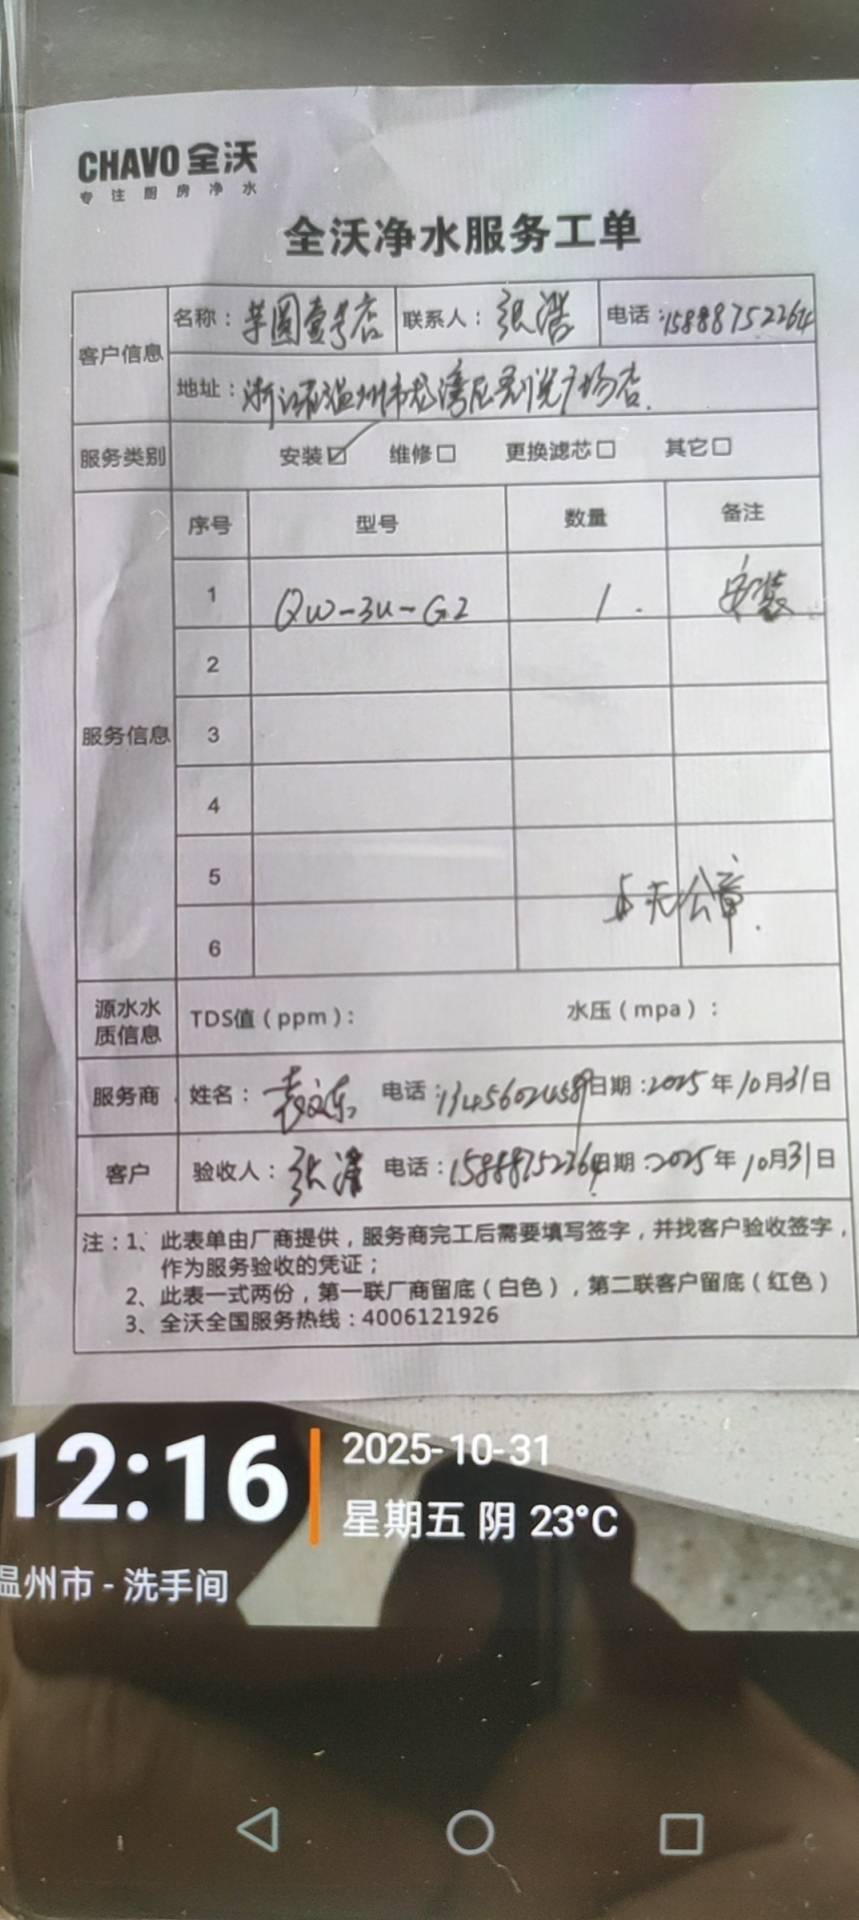 CHAVO 全沃
专注厨房净水
全沃净水服务工单
客户信息
名称：芋圆壹号店 联系人：张 电话：15888752264
地址：浙江省温州市龙湾区 广场店.
服务类别 安装☑ 维修□ 更换滤芯□ 其它□
服务信息
序号 型号 数量 备注
1 QW-3U-G2 1. 安装
2
3
4
5
6
无公章.
源水水质信息 TDS值（ppm）： 水压（mpa）：
服务商 姓名：袁文东 电话：13456024589 日期：2025年10月31日
客户 验收人：张 电话：15888752264 日期：2025年10月31日
注：1、此表单由厂商提供，服务商完工后需要填写签字，并找客户验收签字，
作为服务验收的凭证；
2、此表一式两份，第一联厂商留底（白色），第二联客户留底（红色）
3、全沃全国服务热线：4006121926
12:16
2025-10-31
星期五 阴 23°C
温州市 - 洗手间